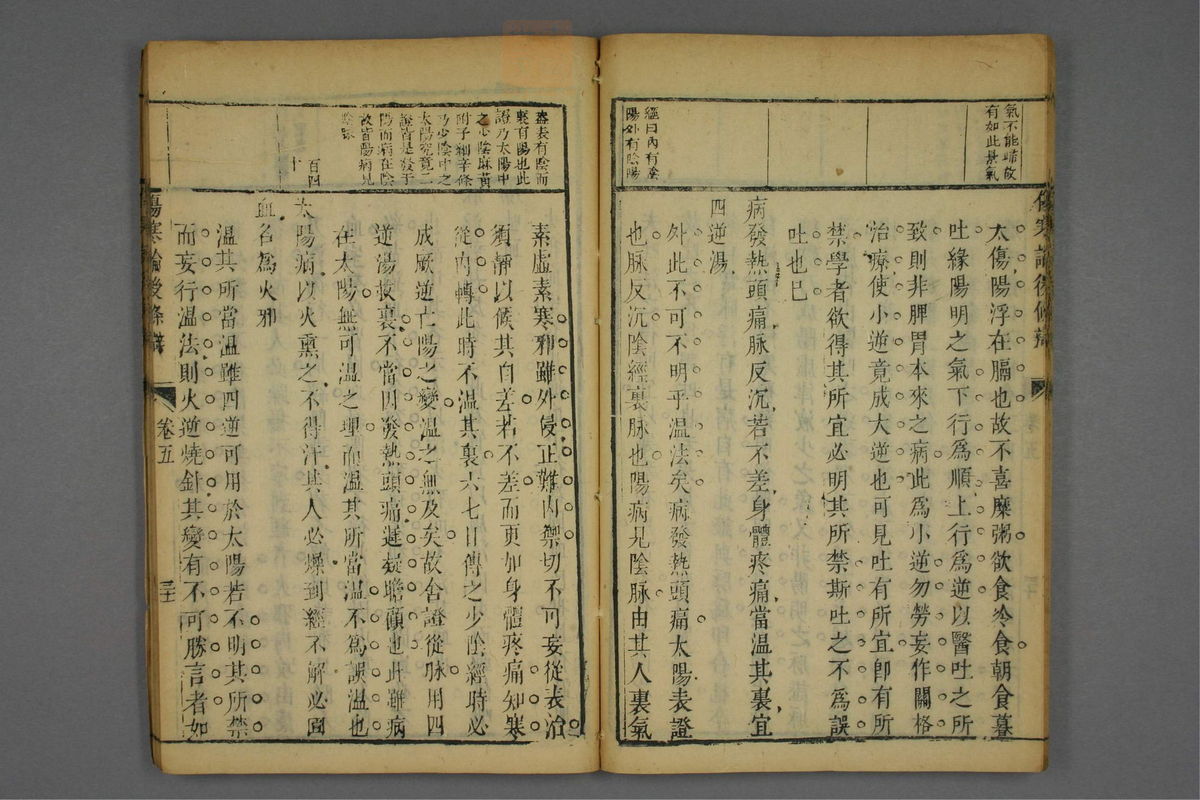 氣不能晡故
有如此景氣
經曰內有陰
陽外有陰陽
傷寒論後條辨
太傷陽浮在膈也故不喜糜粥欲食冷食朝食暮
吐緣陽明之氣下行爲順上行爲逆以醫吐之所
致則非脾胃本來之病此爲小逆勿勞妄作關格
治療使小逆竟成大逆也可見吐有所宜卽有所
禁學者欲得其所宜必明其所禁斯吐之不爲誤
吐也已
病發熱頭痛脈反沉若不差身體疼痛當温其裏宜
四逆湯
外此不可不明乎温法矣病發熱頭痛太陽表證
也脈反沉陰經裏脈也陽病見陰脈由其人裏氣
盖表有陰而
裏有陽也此
證乃太陽中
之少陰麻黃
附子細辛條
乃少陰中之
太陽究竟二
證皆是發于
陽而病在陰
故皆陽病見
陰脉
百四
十
素虛素寒邪雖外侵正難內禦切不可妄從表治
須靜以候其自差若不差而更加身體疼痛知寒
從內轉此時不温其裏六七日傳之少陰經時必
成厥逆亡陽之變温之無及矣故舍證從脉用四
逆湯救裏不當因發熱頭痛遲疑瞻顧也此雖病
在太陽無可温之理而温其所當温不爲誤温也
太陽病以火熏之不得汗其人必燥到經不解必圊
血名爲火邪
温其所當温雖四逆可用於太陽若不明其所禁
而妄行温法則火逆燒針其變有不可勝言者如
傷寒論後條辨
卷五
三十